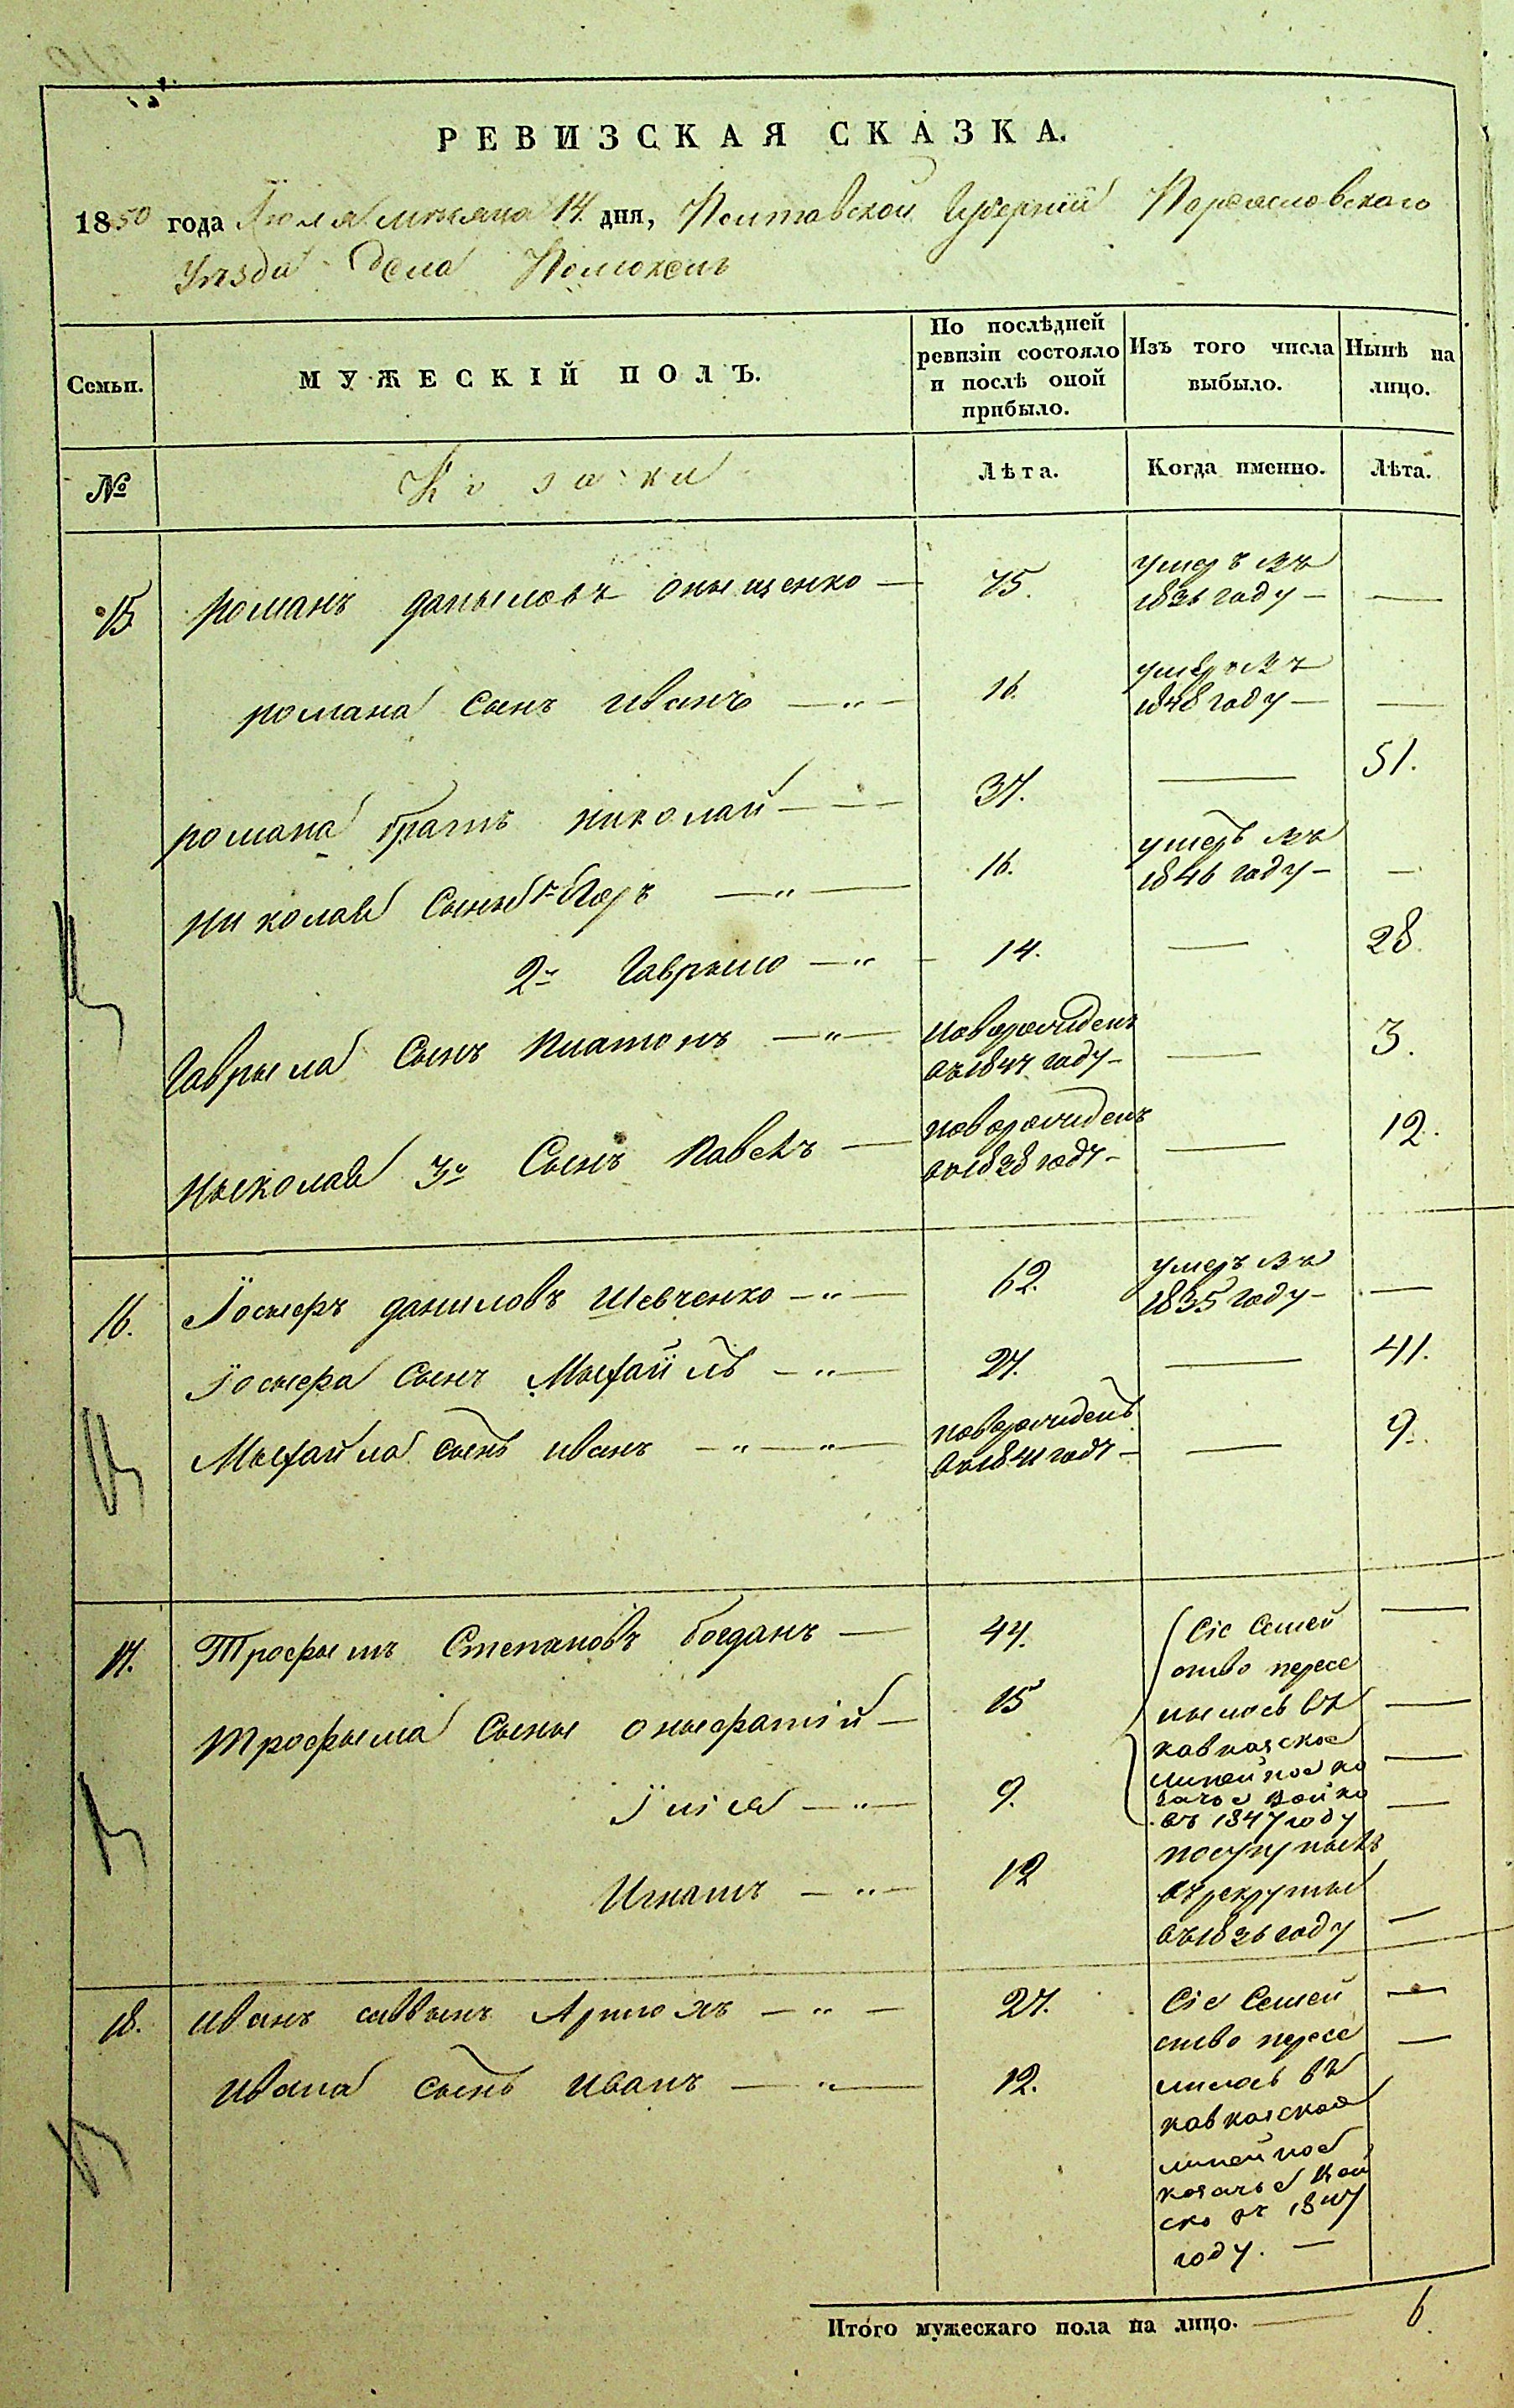 РЕВИЗСКАЯ СКАЗКА.
1850 года Іюля мѣсяца 14 дня, Полтавской Губерніи Переясловскаго
Уѣзда Села Помоклъ
Семьи.
МУЖЕСКІЙ ПОЛЪ.
По послѣдней ревизіи состояло и послѣ оной прибыло.
Изъ того числа выбыло.
Нынѣ на лицо.
№
Козаки
Лѣта.
Когда именно.
Лѣта.
15 романъ даныловъ оныщенко — 75. умеръ въ 1836 году — —
романа сынъ иванъ — " — 16. умеръ въ 1848 году — —
романа братъ николай — — — 37. — 51.
николая сыны 1й Егоръ — " — 16. умеръ въ 1846 году — —
2й Гаврыло — " — 14. — 28
Гаврыла сынъ платонъ — " — новорожденъ въ 1847 году — — 3.
ныколая 3й Сынъ павелъ — новорожденъ въ 1838 году — — 12.
16. Іосыфъ даниловъ Шевченко — " — 62. умеръ въ 1835 году — —
Іосыфа сынъ Мыхайлъ — " — 27. — 41.
Мыхайла сынъ иванъ — " — " — новорожденъ въ 1841 году — — 9.
17. Трофымъ Степановъ богданъ — 47. Сіе Семей —
ство пересе
Трофыма сыны оныфратій — 15 лылось въ —
кавказское
линейное ко —
Iлія — " — 9. зачое войско
въ 1847 году —
Игнатъ — " — 12 поступылъ
въ рекруты
въ 1836 году —
18. иванъ саввынъ Ярмохъ — " — 27. Сіе Семей —
ство пересе —
ивана сынъ иванъ — " — 12. лилось въ
кавказкое
линейное
козачье вой
ско въ 1847
году. —
Итого мужескаго пола на лицо. — 6.